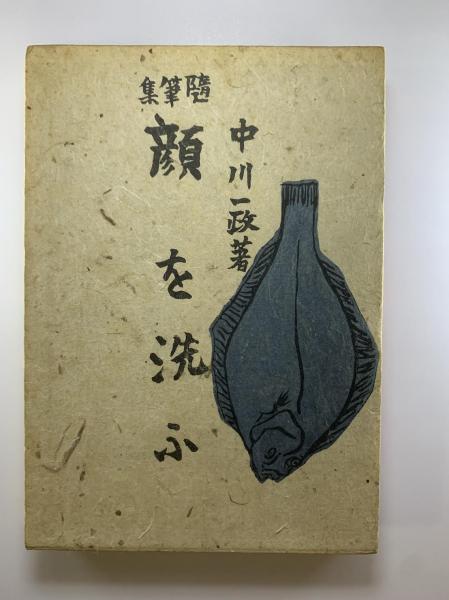 中川一政著
隨筆集
顔を洗ふ